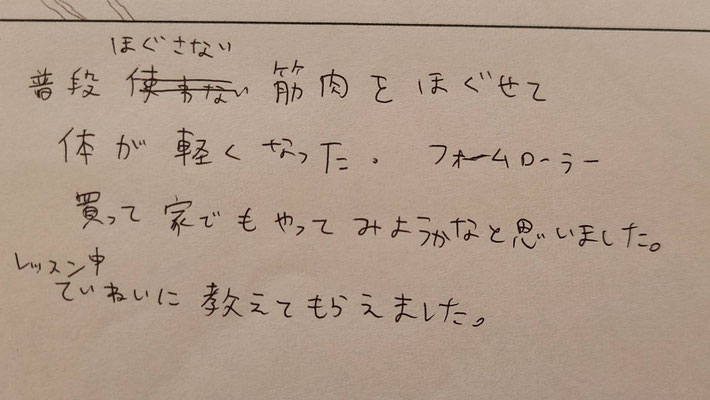 ほぐさない
普段 使わない 筋肉をほぐせて
体が軽くなった。 フォームローラー
買って家でもやってみようかなと思いました。
レッスン中
ていねいに教えてもらえました。